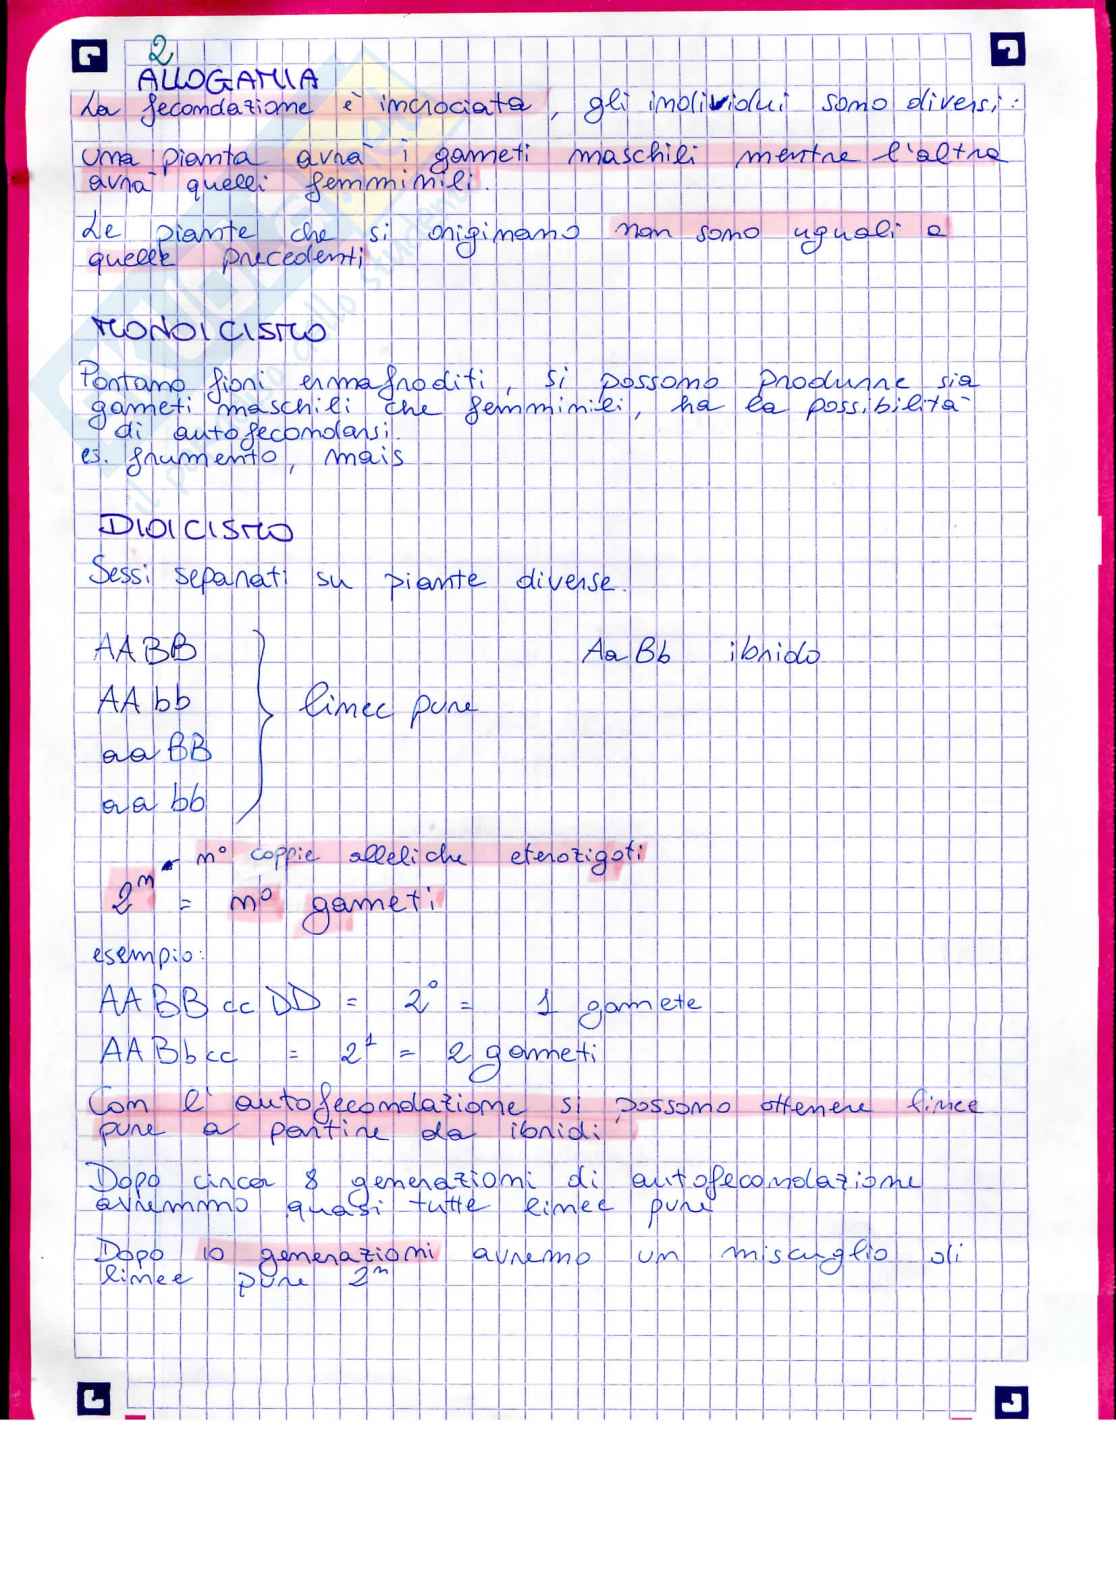 2
ALLOGAMIA
La fecondazione è incrociata, gli individui sono diversi:
una pianta avrà i gameti maschili mentre l'altra
avrà quelli femminili.
Le piante che si originano non sono uguali a
quelle precedenti
MONOICISMO
Portano fiori ermafroditi, si possono produrre sia
gameti maschili che femminili, ha la possibilità
di autofecondarsi.
es. frumento, mais
DIOICISMO
Sessi separati su piante diverse.
AABB
AaBb ibrido
AAbb
linee pure
aaBB
aabb
n° coppie alleliche eterozigoti
2^n = n° gameti
esempio:
AABBccDD = 2^0 = 1 gamete
AABbcc = 2^1 = 2 gameti
Con l'autofecondazione si possono ottenere linee
pure a partire da ibridi
Dopo circa 8 generazioni di autofecondazione
avremmo quasi tutte linee pure
Dopo 10 generazioni avremo un miscuglio di
linee pure 2^n